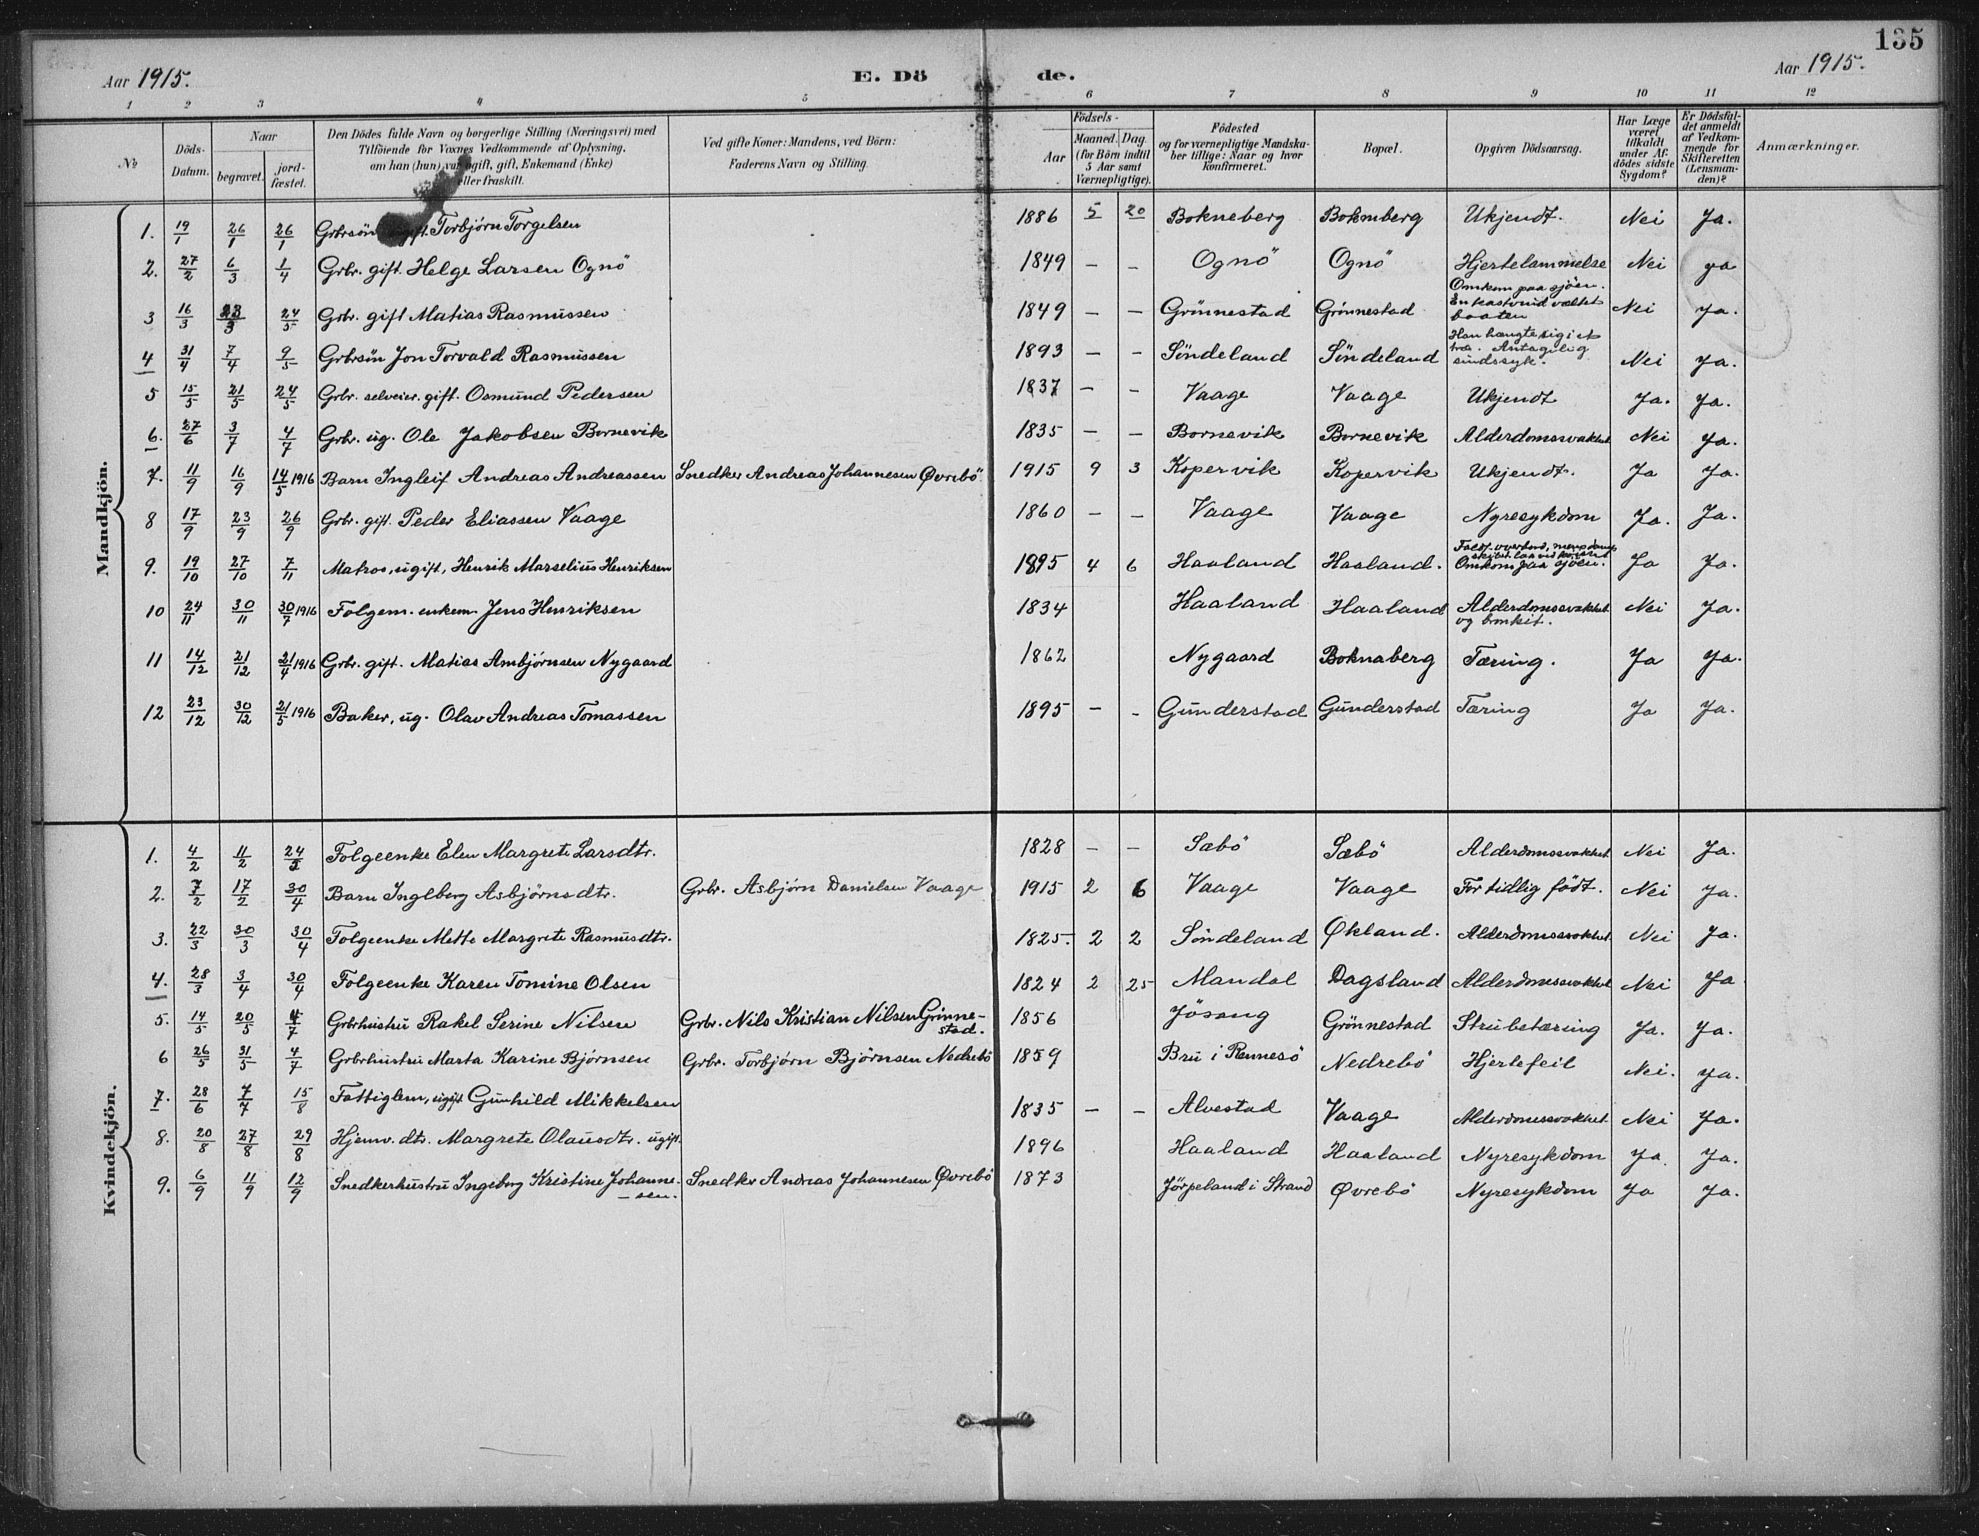 135
Aar 1915. E. Dö de. Aar 1915.
1 2 3 4 5 6 7 8 9 10 11 12
No
Döds-
Datum.
Naar
begravet.
jord-
fæstet.
Den Dödes fulde Navn og borgerlige Stilling (Næringsvei) med
Tilföiende for Voxnes Vedkommende af Oplysning,
om han (hun) var ugift, gift, Enkemand (Enke)
eller fraskilt.
Ved gifte Koner: Mandens, ved Börn:
Faderens Navn og Stilling.
Födsels-
Aar
Maaned. Dag.
(for Börn indtil
5 Aar samt
Værnepligtige).
Födested
og for værnepligtige Mandska-
ber tillige: Naar og hvor
konfirmeret.
Bopæl.
Opgiven Dödsaarsag.
Har Læge
været
tilkaldt
under Af-
dödes sidste
Sygdom?
Er Dödsfal-
det anmeldt
af Vedkom-
mende for
Skifteretten
(Lensman-
den)?
Anmærkninger.
Mandkjön.
1. 19/1 26/1 26/1 Grbrsön ugift. Torbjørn Torgelsen 1886 5 20 Bokneberg Boknberg Ukjendt. Nei Ja.
2. 27/2 6/3 1/4 Grbr. gift. Helge Larsen Ognö 1849 – – Ognö Ognö Hjertelammelse Nei ja
3 16/3 23/3 24/5 Grbr. gift Matias Rasmussen 1849 – – Grönnestad Grönnestad Omkom paa sjöen.
En kastvind væltet
baaten Nei Ja.
4 31/4 7/4 9/5 Grbrsön Jon Torvald Rasmussen 1893 – – Söndeland Söndeland Han hængte sig i et
træ. Antagelig
sindssyk. Nei Ja.
5 15/5 21/5 24/5 Grbr. selveier. gift. Osmund Pedersen 1837 – – Vaage Vaage Ukjendt Ja. Ja.
6. 27/6 3/7 4/7 Grbr. ug. Ole Jakobsen Bornevik 1835 – – Bornevik Bornevik Alderdomssvakhet Nei Ja.
7. 11/9 16/9 14/5 1916 Barn Ingleif Andreas Andreassen Snedker Andreas Johannesen Øvrebö 1915 9 3 Kopervik Kopervik Ukjendt. Ja Ja.
8 17/9 23/9 26/9 Grbr. gift. Peder Eliassen Vaage 1860 – – Vaage Vaage Nyresykdom Ja. Ja.
9. 19/10 27/10 7/11 Matros, ugift, Henrik Marselius Henriksen 1895 4 6 Haaland Haaland. Faldt overbord, mens damp
skibet laa ved
Omkom paa sjöen. Ja Ja.
10 24/11 30/11 30/7 1916 Folgem. enkem. Jens Henriksen 1834 Haaland Haaland Alderdomssvakhet
og bronkit. Nei Ja.
11 14/12 21/12 21/4 1916 Grbr. gift. Matias Ambjörnsen Nygaard 1862 Nygaard Boknaberg Tæring. Ja Ja.
12 23/12 30/12 21/5 1916 Baker, ug. Olav Andreas Tomassen 1895 – – Gunderstad Gunderstad Tæring Ja Ja.
Kvindekjön.
1. 4/2 11/2 24/2 Folgeenke Elen Margrete Larsdtr. 1828 – – Sæbö Sæbö Alderdomssvakhet Nei Ja.
2. 7/2 17/2 30/4 Barn Inglberg Asbjørnsdtr. Grbr. Asbjørn Danielsen Vaage 1915 2 6 Vaage Vaage For tidlig födt. Nei Ja.
3. 22/3 30/3 30/4 Folgeenke Mette Margrete Rasmusdtr. 1825. 2 2 Söndeland Økland. Alderdomssvakhet Nei Ja.
4. 28/3 3/4 30/4 Folgeenke Karen Tomine Olsen 1824 2 25 Mandal Dagsland Alderdomssvakhet Nei Ja
5. 14/5 20/5 4/7 Grbrhustru Rakel Serine Nilsen Grbr. Nils Kristian Nilsen Grinne-
stad. 1856 Jösang Grönnestad Strubetæring Ja. Ja.
6 26/5 31/5 4/7 Grbrhustru Marta Karine Bjørnsen Grbr. Torbjørn Björnsen Nedrebö 1859 Bru i Rennesö Nedrebö Hjertefeil Nei. Ja.
7. 28/6 7/7 15/8 Fattiglem, ugift Gunhild Mikkelsen 1835 – – Alvestad Vaage Alderdomssvakhet Nei Ja.
8. 20/8 27/8 29/8 Hjemv. dtr. Margrete Olausdtr. ugift. 1896 Haaland Haaland Nyresykdom Ja. Ja.
9. 6/9 11/9 12/9 Snedkerhustru Ingeborg Kristine Johanne-
sen. Snedker Andreas Johannesen Øvrebö 1873 Jörpeland i Strand Øvrebö Nyresykdom Ja Ja.